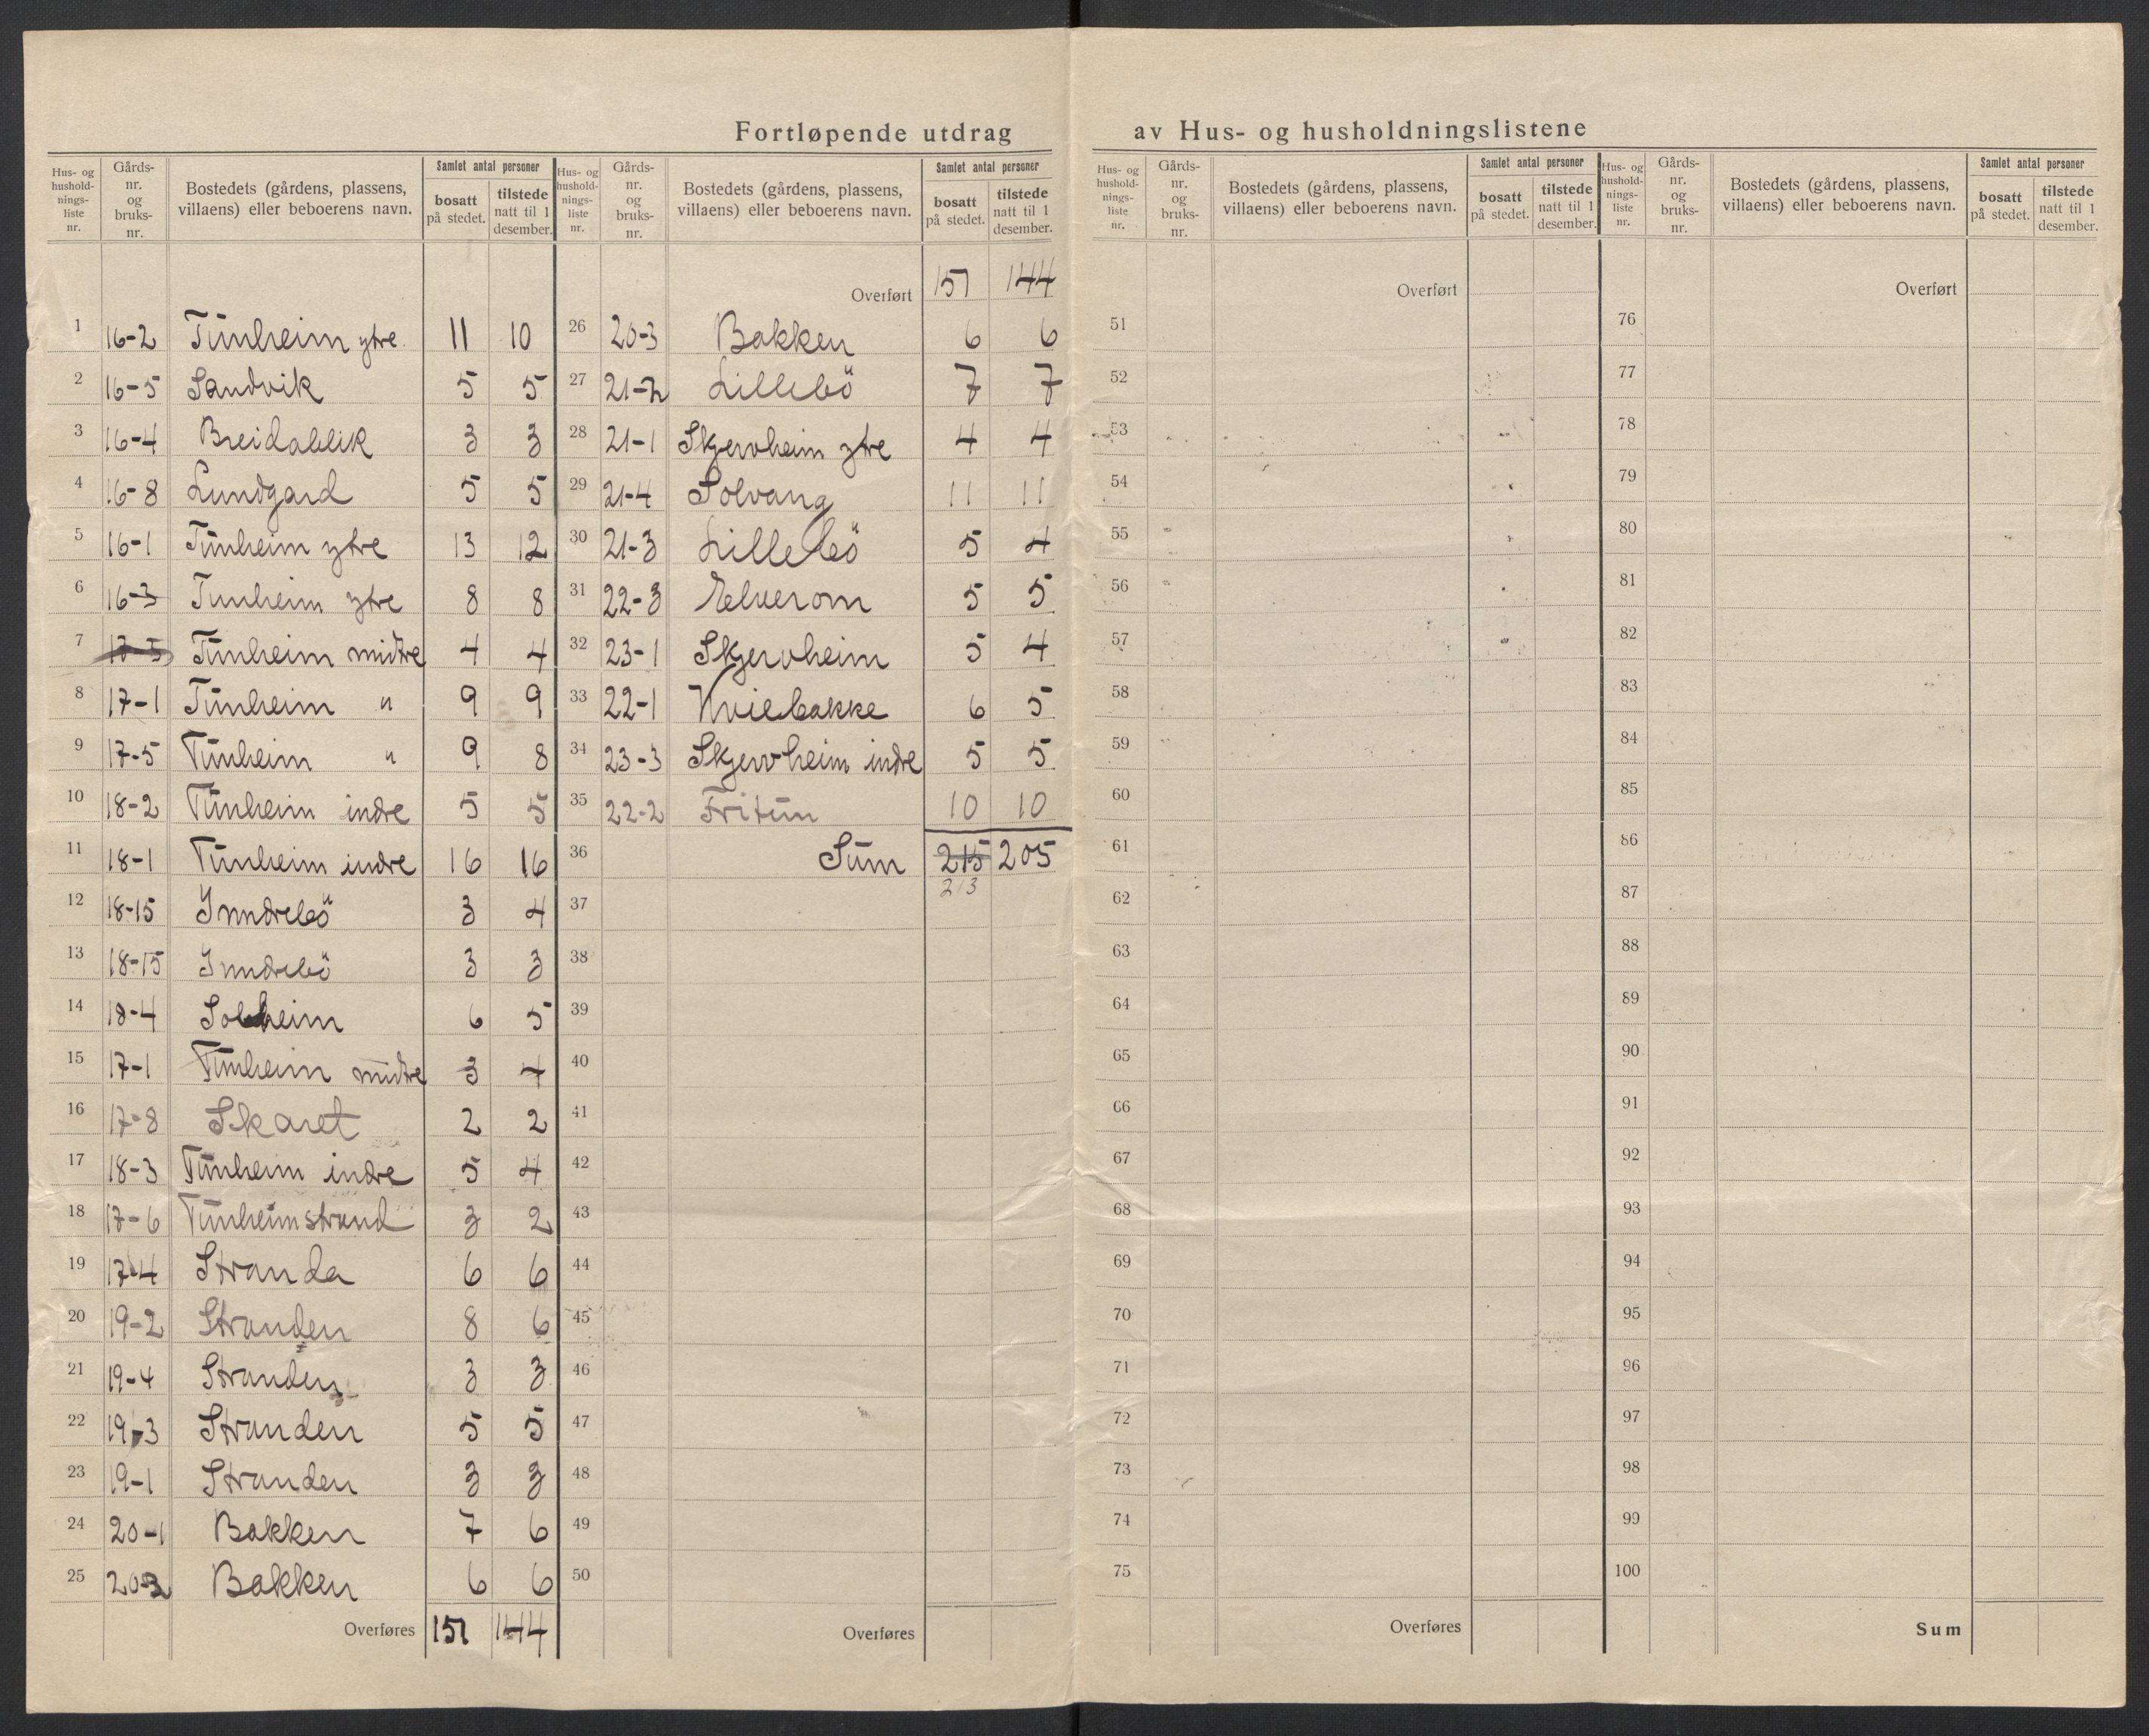 Fortløpende utdrag av Hus- og husholdningslistene
Hus- og husholdningsliste nr. | Gårds- nr. og bruks- nr. | Bostedets (gårdens, plassens, villaens) eller beboerens navn. | Samlet antal personer bosatt på stedet. | tilstede natt til 1 desember.
1 16-2 Tunheim ytre 11 10
2 16-5 Sandvik 5 5
3 16-4 Breidablik 3 3
4 16-8 Lundgard 5 5
5 16-1 Tunheim ytre 13 12
6 16-3 Tunheim ytre 8 8
7 17-5 Tunheim midtre 4 4
8 17-1 Tunheim " 9 9
9 17-5 Tunheim " 9 8
10 18-2 Tunheim indre 5 5
11 18-1 Tunheim indre 16 16
12 18-15 Inndrebö 3 4
13 18-15 Inndrebö 3 3
14 18-4 Solheim 6 5
15 17-1 Tunheim midtre 3 4
16 17-8 Skaret 2 2
17 18-3 Tunheim indre 5 4
18 17-6 Tunheimstrand 3 2
19 17-4 Stranda 6 6
20 19-2 Stranden 8 6
21 19-4 Stranden 3 3
22 19-3 Stranden 5 5
23 19-1 Stranden 3 3
24 20-1 Bakken 7 6
25 20-2 Bakken 6 6
Overføres 151 144
Hus- og husholdningsliste nr. | Gårds- nr. og bruks- nr. | Bostedets (gårdens, plassens, villaens) eller beboerens navn. | Samlet antal personer bosatt på stedet. | tilstede natt til 1 desember.
Overført 151 144
26 20-3 Bakken 6 6
27 21-2 Lillebö 7 7
28 21-1 Skjervheim ytre 4 4
29 21-4 Solvang 11 11
30 21-3 Lillebö 5 4
31 22-3 Elverom 5 5
32 23-1 Skjervheim 5 4
33 22-1 Kvilebakke 6 5
34 23-3 Skjervheim indre 5 5
35 22-2 Fritun 10 10
36 Sum 215 205
213
37
38
39
40
41
42
43
44
45
46
47
48
49
50
Overføres
Hus- og husholdningsliste nr. | Gårds- nr. og bruks- nr. | Bostedets (gårdens, plassens, villaens) eller beboerens navn. | Samlet antal personer bosatt på stedet. | tilstede natt til 1 desember.
Overført
51
52
53
54
55
56
57
58
59
60
61
62
63
64
65
66
67
68
69
70
71
72
73
74
75
Overføres
Hus- og husholdningsliste nr. | Gårds- nr. og bruks- nr. | Bostedets (gårdens, plassens, villaens) eller beboerens navn. | Samlet antal personer bosatt på stedet. | tilstede natt til 1 desember.
Overført
76
77
78
79
80
81
82
83
84
85
86
87
88
89
90
91
92
93
94
95
96
97
98
99
100
Sum